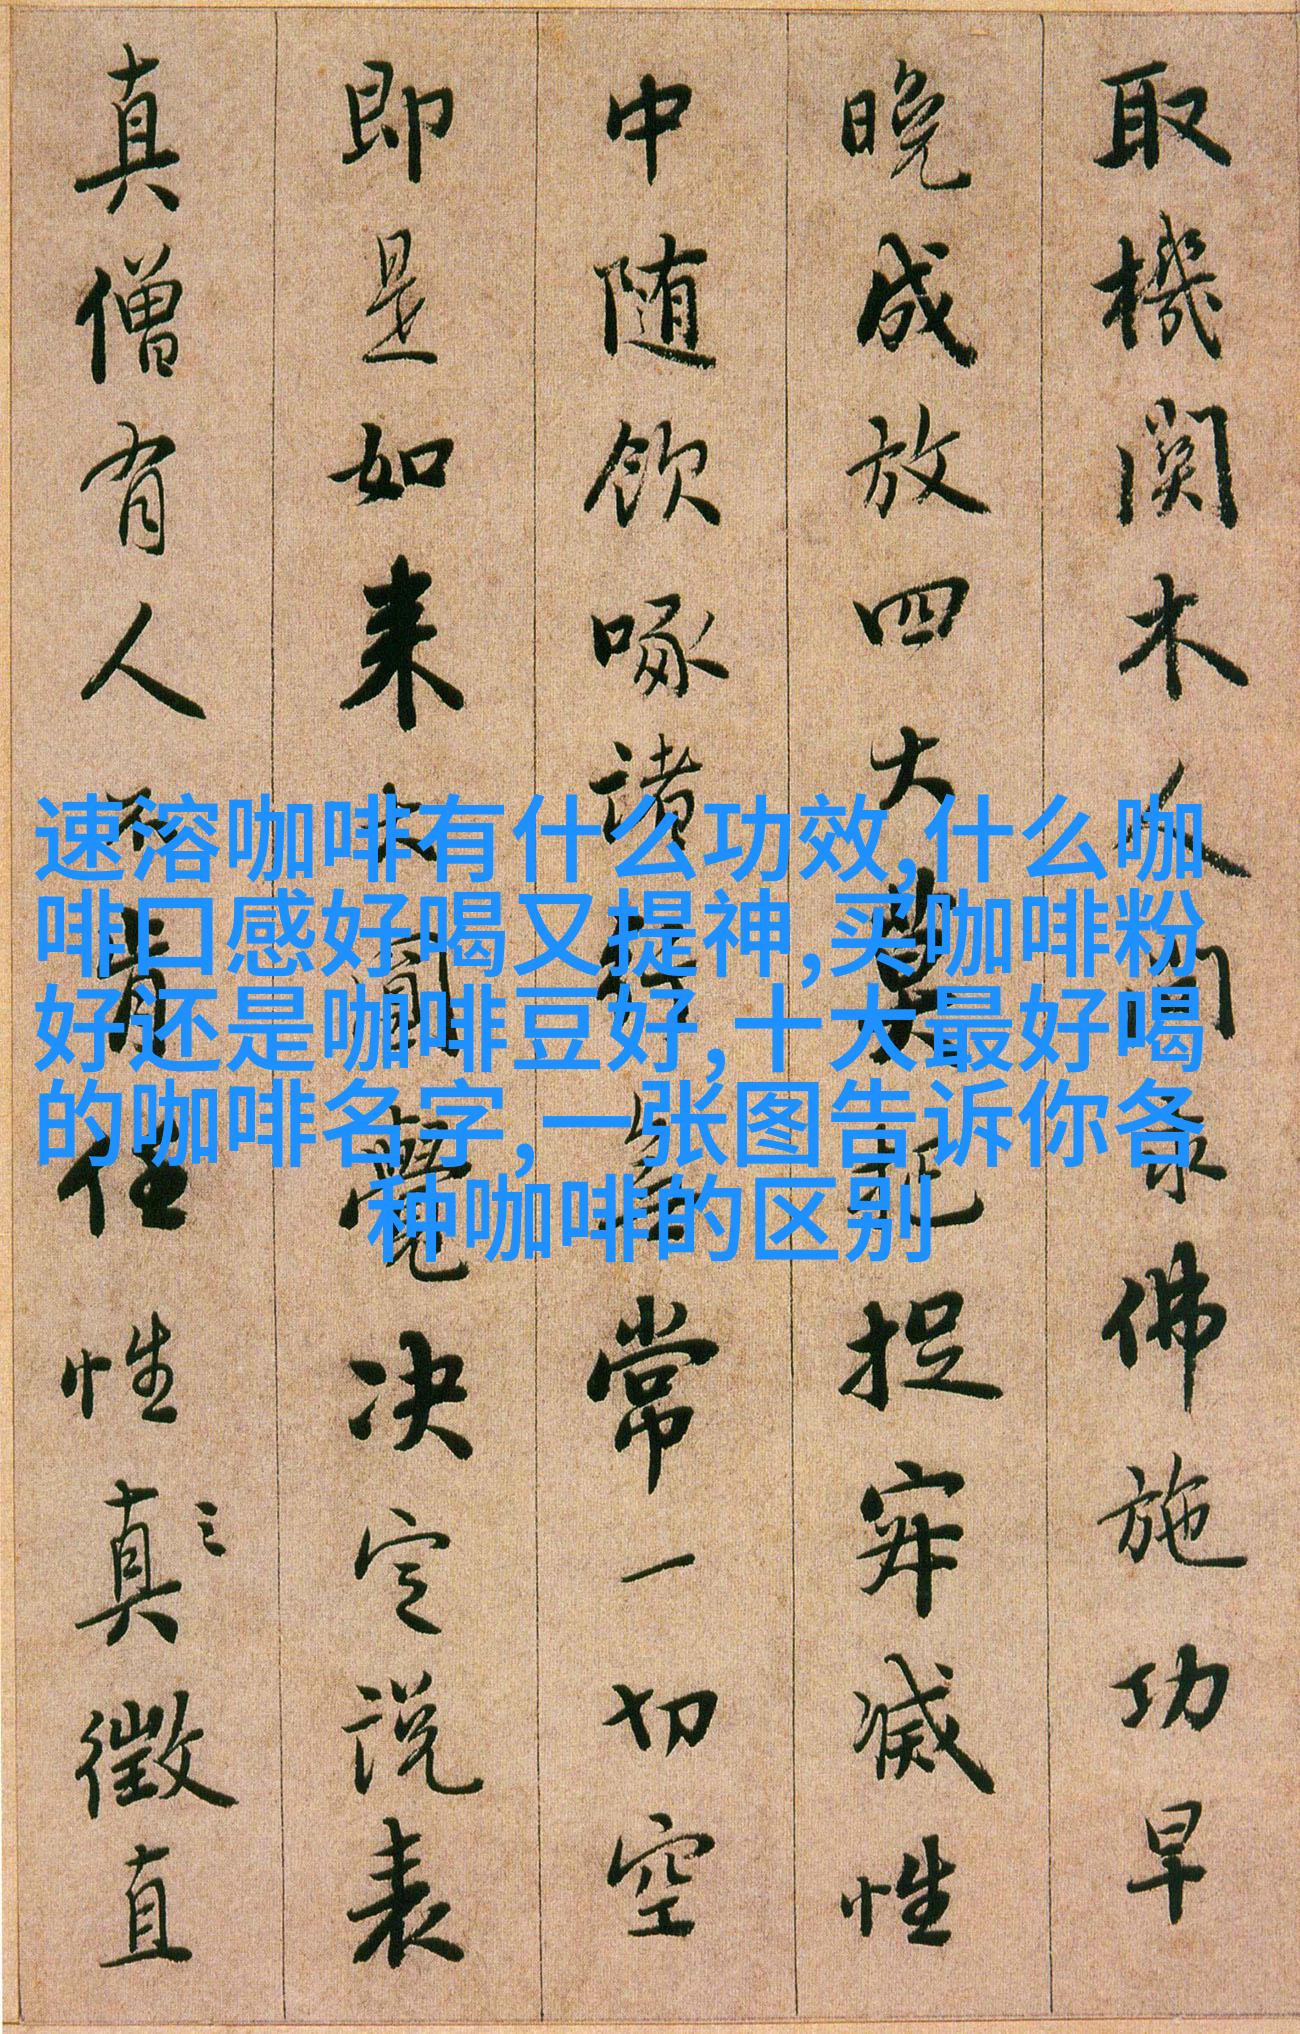 取機関木人問求佛施功早
晚成放四大莫把捉寂滅性
中随飲啄諸行無常一切空
即是如来大圓覺决定説表
真僧有人不肯任性真徵直
速溶咖啡有什么功效,什么咖
啡口感好喝又提神,买咖啡粉
好还是咖啡豆好,十大最好喝
的咖啡名字,一张图告诉你各
种咖啡的区别